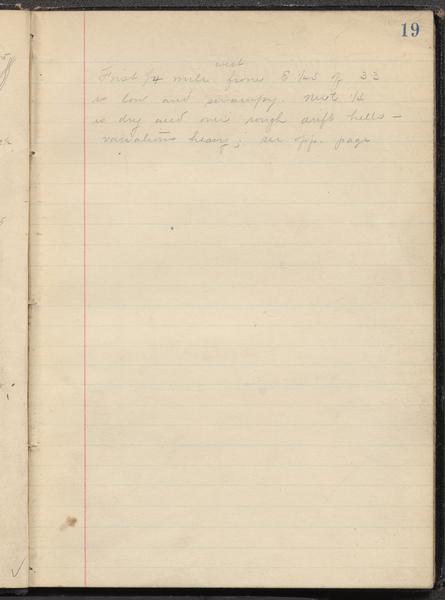 19
west
First 1/4 mile from E 1/4 S of 33
is low and swampy. Next 1/2
is dry and over rough drift hills —
variations heavy; see opp. page